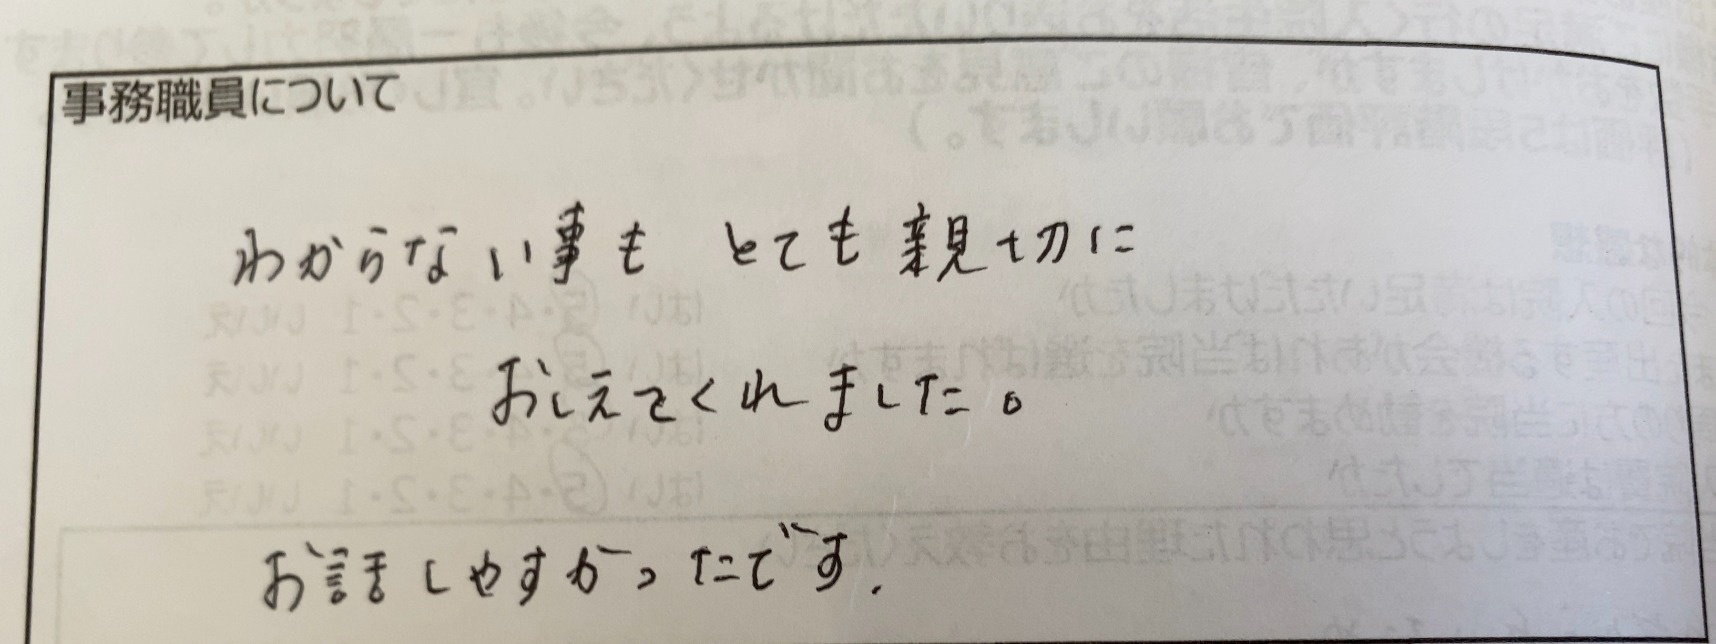 事務職員について
わからない事も とても親切に
おしえてくれました。
お話しやすかったです.